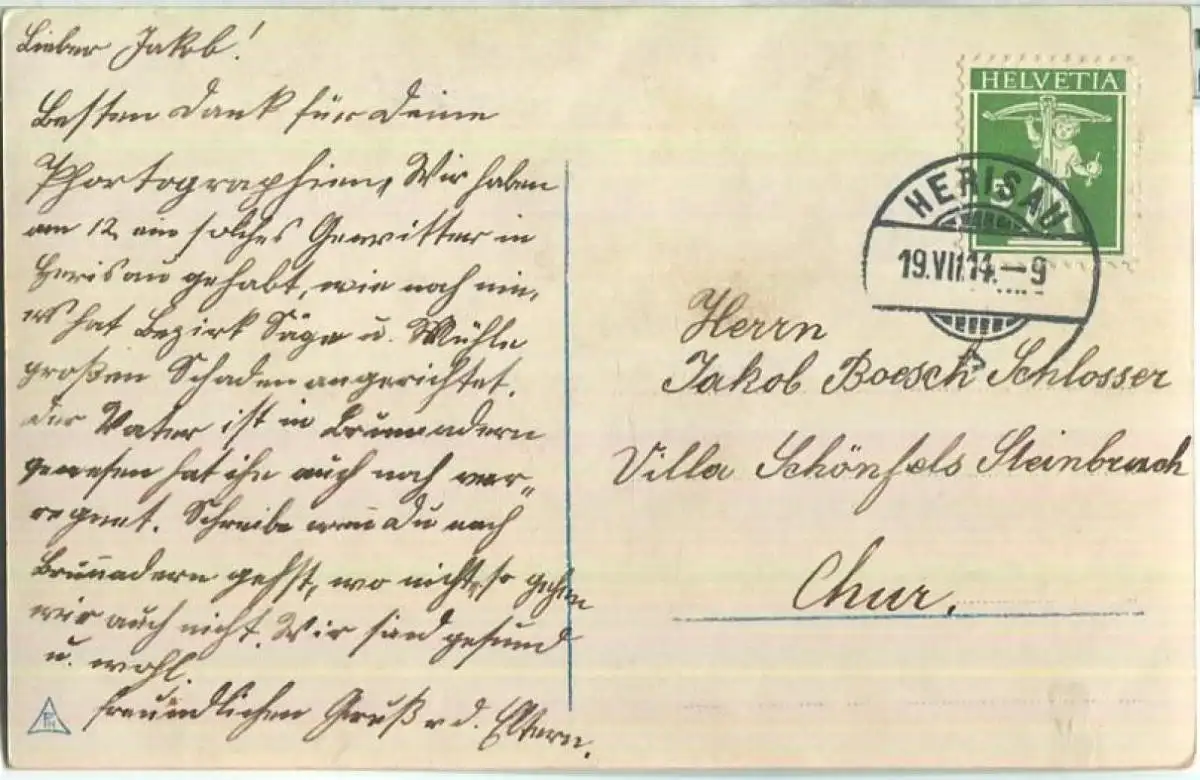 Lieber Jakob!
Besten Dank für Deine
Phortographien, Wir haben
am 12. ein solches Gewitter in
Herisau gehabt, wie noch nie,
es hat Bezirk Säge u. Mühle
großen Schaden angerichtet.
Der Vater ist in Brunnadern
gewesen hat ihn auch noch ver„
regnet. Schreibe wenn Du nach
Brunnadern gehst, wo nicht, so gehen
wir auch nicht. Wir sind gesund
u. wohl.
freundlichen Gruß v d. Eltern.
HELVETIA
HERISAU
19.VII.14.–9
Herrn
Jakob Boesch Schlosser
Villa Schönfels Steinbruch
Chur.